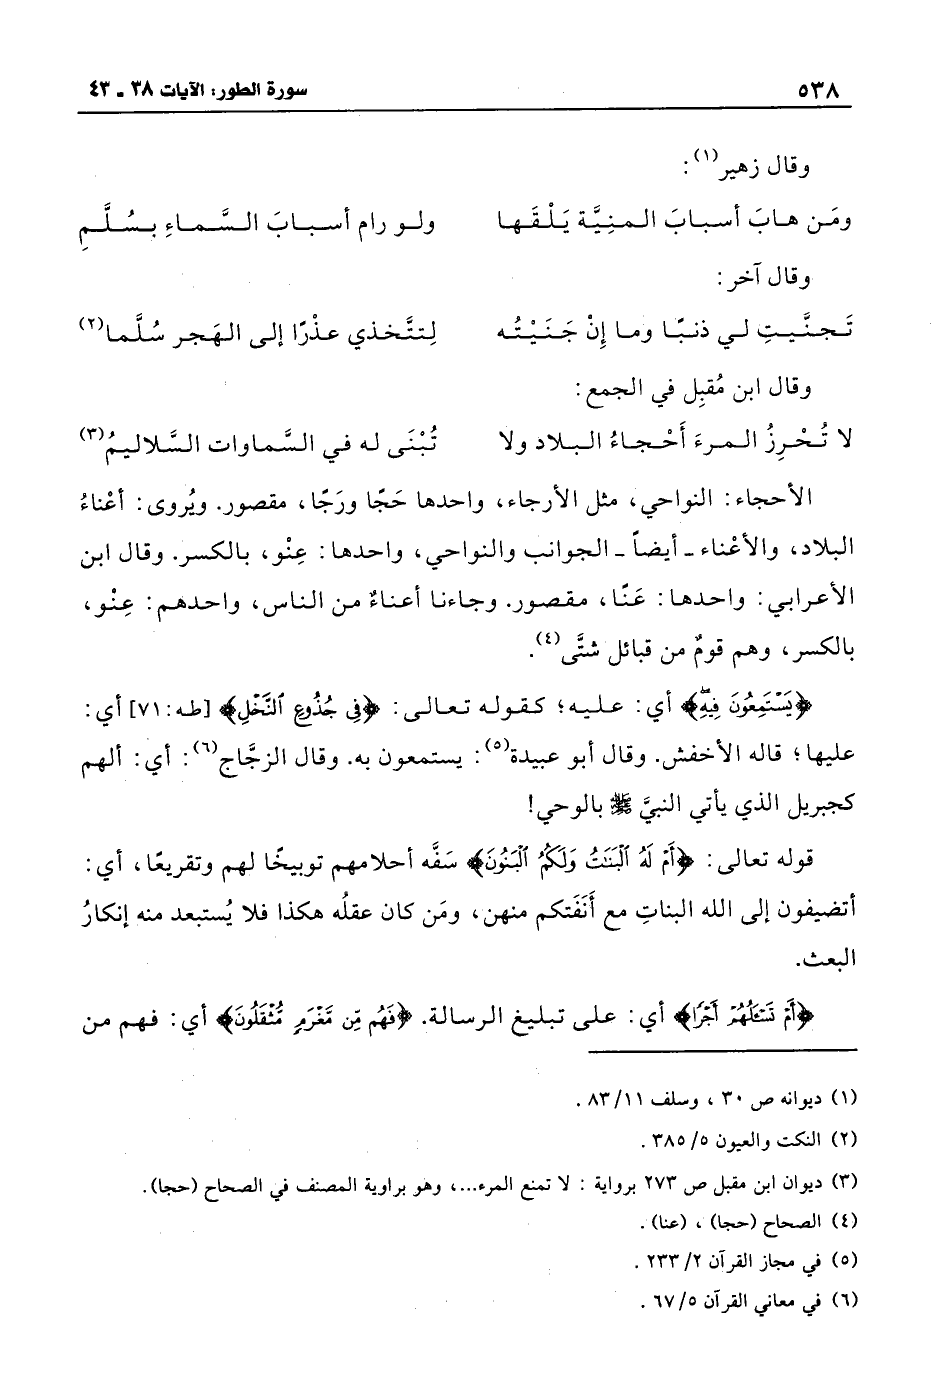 ٥٣٨ سورة الطور: الآيات ٣٨ ـ ٤٣
وقال زهير(١):
ومَن هابَ أسبابَ المنِيَّة يَلْقَها ولو رام أسبابَ السَّماءِ بسُلَّمِ
وقال آخر:
تَجنَّيتِ لي ذنبًا وما إنْ جَنَيْتُه لِتتَّخذي عذْرًا إلى الهَجر سُلَّما(٢)
وقال ابن مُقبِل في الجمع:
لا تُحْرِزُ المرءَ أَحْجاءُ البلاد ولا تُبْنَى له في السَّماوات السَّلاليمُ(٣)
الأحجاء: النواحي، مثل الأرجاء، واحدها حَجًا ورَجًا، مقصور. ويُروى: أعْناءُ
البلاد، والأعْناء ـ أيضاً ـ الجوانب والنواحي، واحدها: عِنْو، بالكسر. وقال ابن
الأعرابي: واحدها: عَنًا، مقصور. وجاءنا أعناءٌ من الناس، واحدهم: عِنْو،
بالكسر، وهم قومٌ من قبائل شتَّى(٤).
﴿يَسْتَمِعُونَ فِيهِۖ﴾ أي: عليه؛ كقوله تعالى: ﴿فِي جُذُوعِ ٱلنَّخْلِ﴾ [طه: ٧١] أي:
عليها؛ قاله الأخفش. وقال أبو عبيدة(٥): يستمعون به. وقال الزجَّاج(٦): أي: ألهم
كجبريل الذي يأتي النبيَّ ﷺ بالوحي!
قوله تعالى: ﴿أَمْ لَهُ ٱلْبَنَٰتُ وَلَكُمُ ٱلْبَنُونَ﴾ سَفَّه أحلامهم توبيخًا لهم وتقريعًا، أي:
أتضيفون إلى الله البناتِ مع أَنَفَتكم منهن، ومَن كان عقلُه هكذا فلا يُستبعد منه إنكارُ
البعث.
﴿أَمْ تَسْـَٔلُهُمْ أَجْرًا﴾ أي: على تبليغ الرسالة. ﴿فَهُم مِّن مَّغْرَمٍ مُّثْقَلُونَ﴾ أي: فهم من
(١) ديوانه ص ٣٠ ، وسلف ١١/ ٨٣ .
(٢) النكت والعيون ٥/ ٣٨٥ .
(٣) ديوان ابن مقبل ص ٢٧٣ برواية : لا تمنع المرء...، وهو براوية المصنف في الصحاح (حجا).
(٤) الصحاح (حجا) ، (عنا) .
(٥) في مجاز القرآن ٢/ ٢٣٣ .
(٦) في معاني القرآن ٥/ ٦٧ .